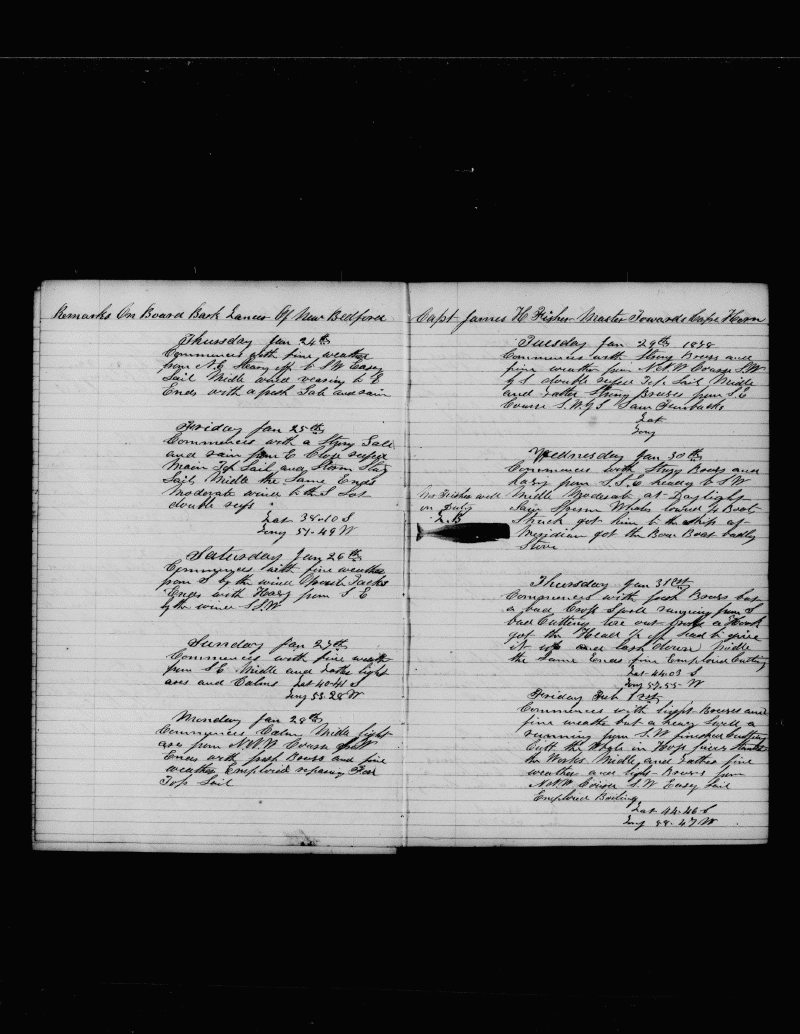 Remarks On Board Bark Lancer Of New Bedford
Thursday Jan 24th
Commences with fine weather
from N.E Steary off to SW Easy
Sail Midle wind veering to E
Ends with a fresh Gale and rain
Friday Jan 25th
Commences with a Strong Gale
and rain from E Close reefed
Main Top Sail and Storm Stay
Sail Midle the Same Ends
Moderate wind to the S Set
double reefs
Lat 38-10 S
Long 51-49 W
Saturday Jan 26th
Commences with fine weather
from S by the wind
Ends with Hazy from S E
by the wind S S W
Sunday Jan 27th
Commences with fine weather
from S.E Midle and Latter light
airs and Calms Lat 40-41 S
Long 53-28 W
Monday Jan 28th
Commences Calm Midle light
airs from NNW Course
Ends with fresh Breses and fine
weather Employed repairing For
Top Sail
Capt James H Fisher Master Towards Cape Horn
Tuesday Jan 29th
Commences with Strong Breses and
fine weather from NNW Course S.W
by S double reefed Top Sail Midle
and Latter Strong Breeses from S.E
Course S.W by S Saw Finbacks
Lat
Long
Wednesday Jan 30th
Commences with Strong Breses and
hazy from S.S.E heading to SW
Midle Moderate at Daylight
Saw Sperm Whales lowered 4 Boats
Struck got him to the Ship at
Meridian got the Bow Boat badley
Stove
Mr Fisher well
on Duty
L.B
Thursday Jan 31st
Commences with fresh Breses but
a bad Crop Swell running from S
bad Cutting tore out a Hook
got the Head
it up and lash down Midle
the Same Ends fine Employed Cutting
Lat 44-03 S
Long 57-55 W
Friday Feb 1st
Commences with light Breeses and
fine weathe but a heavy Swell a
running from S.W finished Cutting
Cutt the Whale in
the Works Midle and Latter fine
weather and light Breses from
NNW Coirse S.W Easy Sail
Employed Boiling
Lat 44-46 S
Long 58-47 W